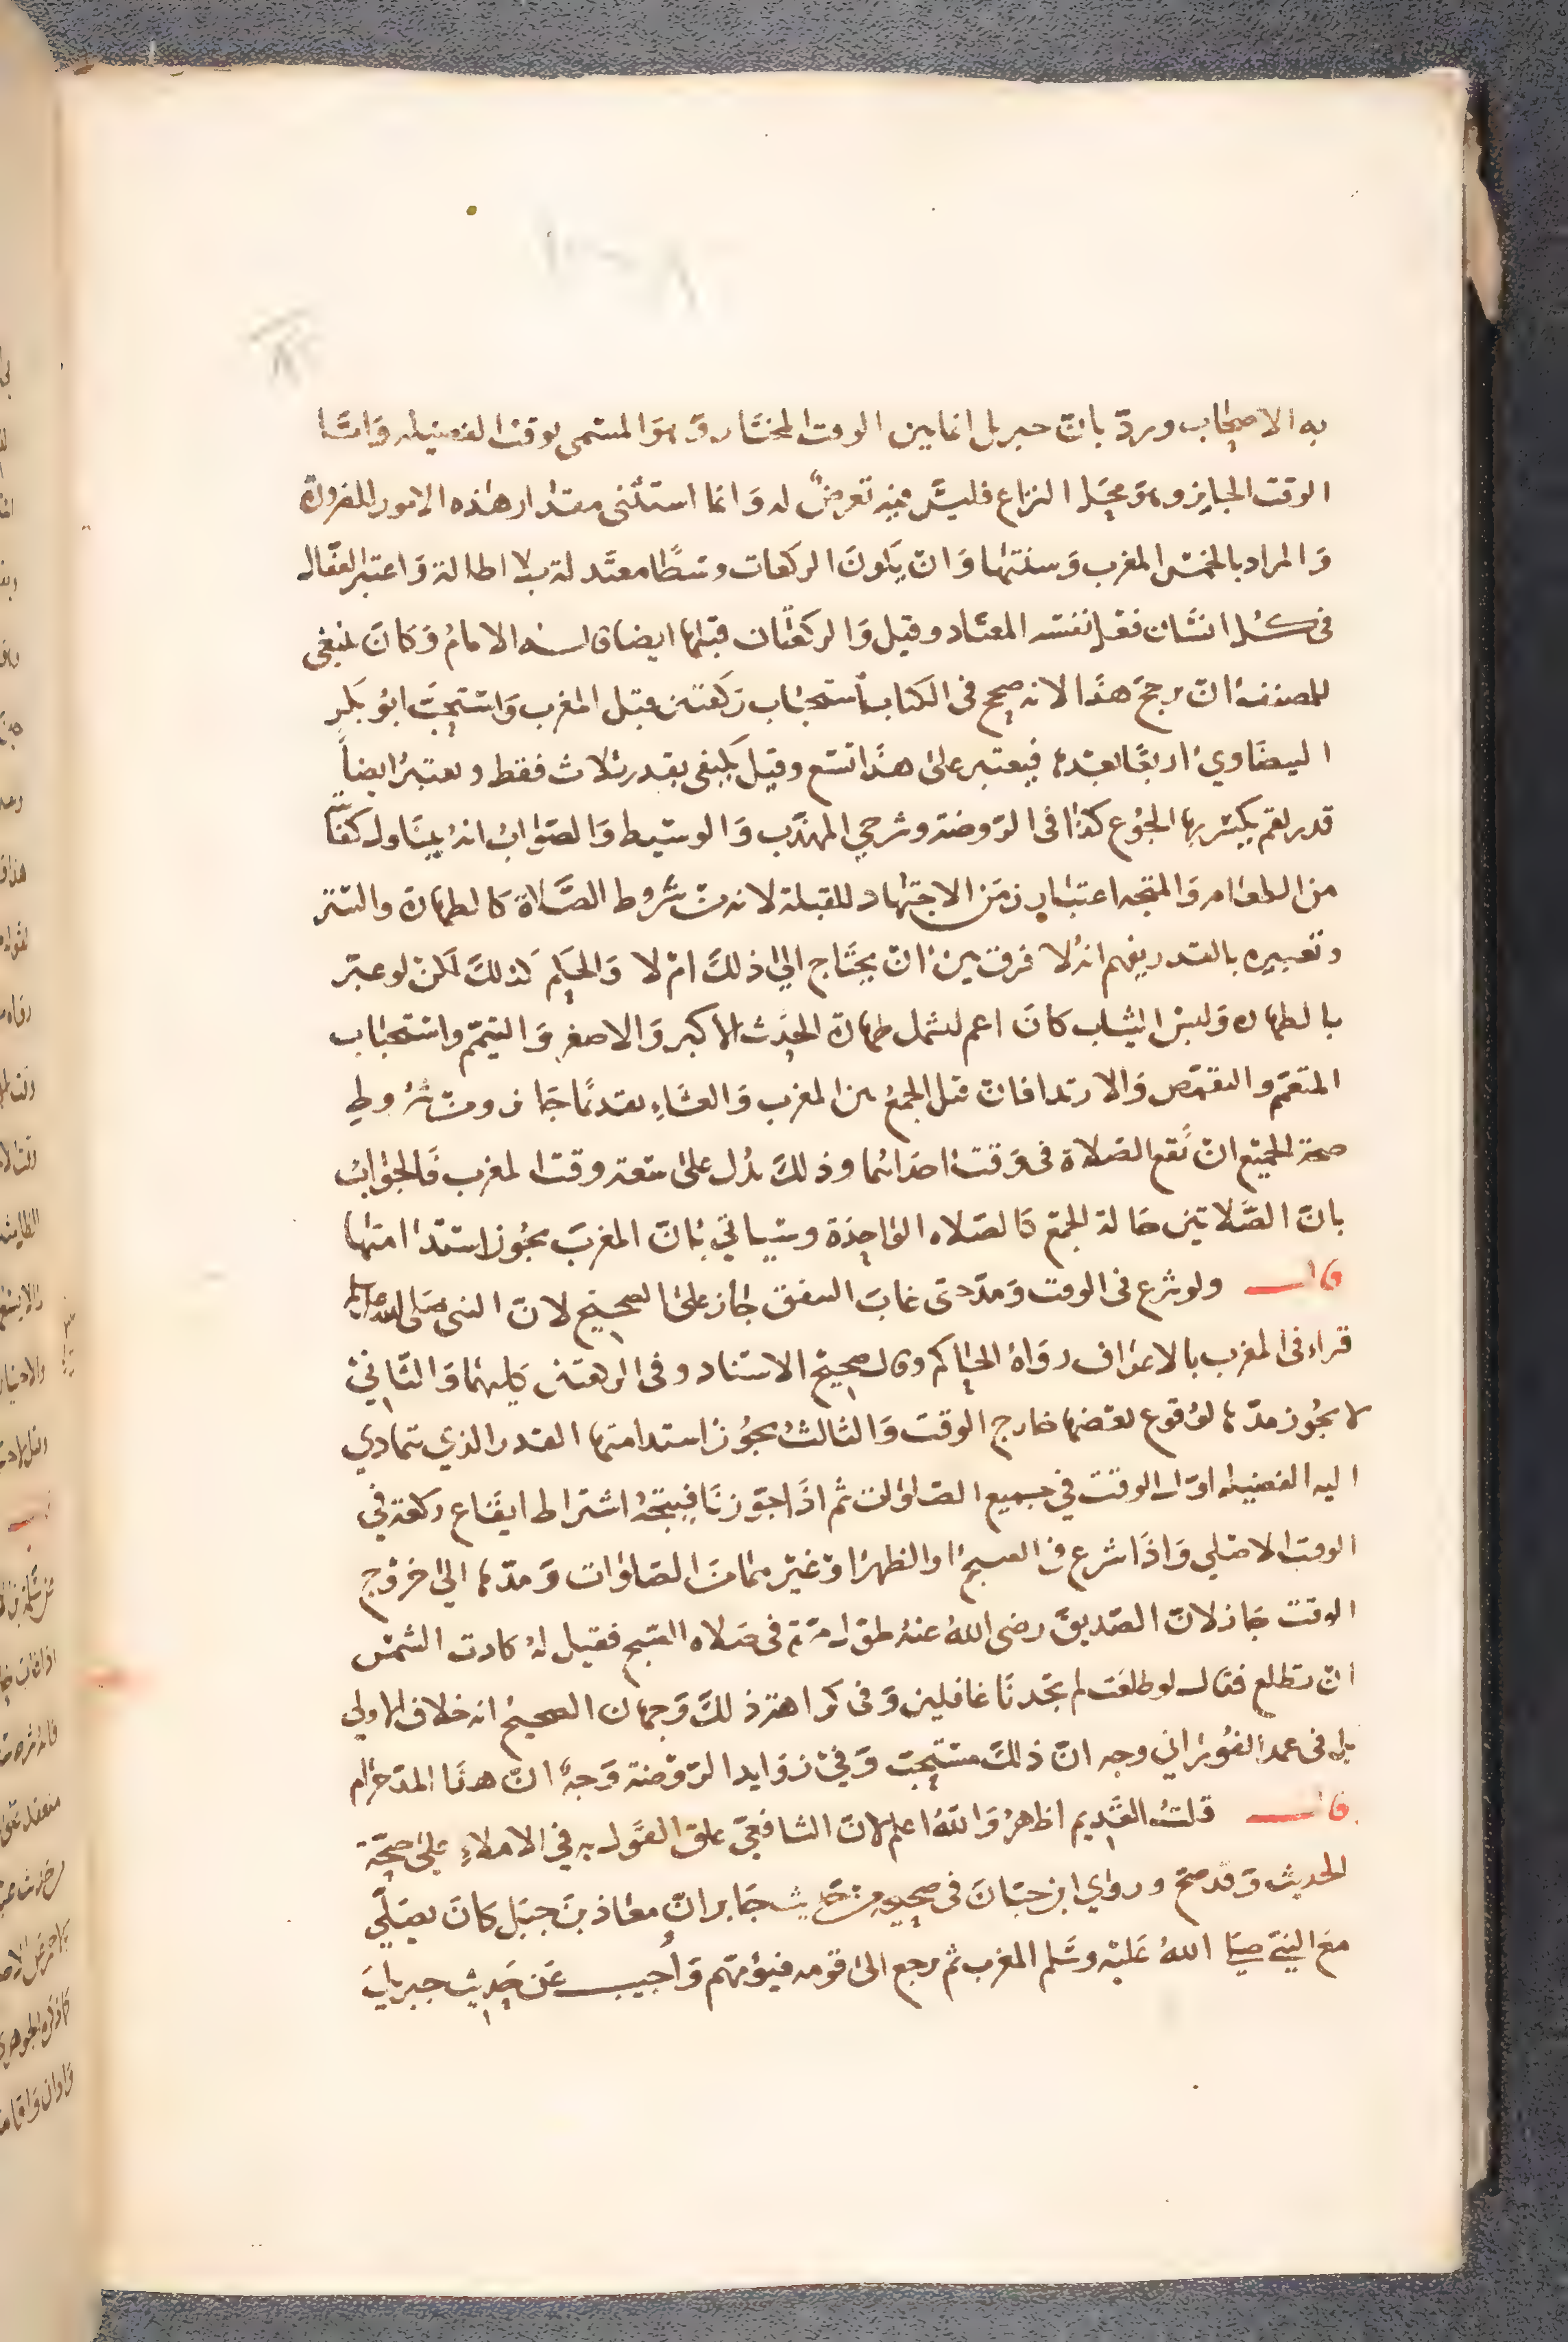 به الاصحاب ورد بان جبريل انما بين الوقت المختار وهو المسمى بوقت الفضيله واما
الوقت الجايز وهو محل النزاع فليس فيه تعرض له وانما استثنى مقدار هذه الامور للضرورة
والمراد بالخمس المغرب وسنتها وان يكون الركعات وسطا معتدلة بلا اطالة واعتبر القفال
فى كل انسان فعل نفسه المعتاد وقيل والركعتان قبلها ايضا قاله الامام وكان ينبغى
للمصنف ان يرجح هذا لانه صحح فى الكتاب استحباب ركعتين قبل المغرب واستحب ابو بكر
البيضاوي اربعا بعدها فيعتبر على هذا تسع وقيل يكفى بقدر ثلاث فقط ويعتبر ايضا
قدر لقم يكسر بها الجوع كذا فى الروضة وشرحي المهذب والوسيط والصواب انه يتناول كفا
من الطعام والمتجه اعتبار زمن الاجتهاد للقبلة لانه من شروط الصلاة كالطهارة والستر
وتعبيره بالقدر يفهم انه لا فرق بين ان يحتاج الي ذلك ام لا والحكم كذلك لكن لو عبر
بالطهاره ولبس الثياب كان اعم ليشمل طهارة الحدث الاكبر والاصغر والتيمم واستحباب
التعمم والتقمص والارتدا فان قيل الجمع بين المغرب والعشاء تقديما جايز ومن شروط
صحة الجمع ان تقع الصلاة فى وقت احداهما وذلك يدل على سعة وقت المغرب فالجواب
بان الصلاتين حالة الجمع كالصلاه الواحدة وسياتي بان المغرب يجوز استدامتها
قال ولو شرع فى الوقت ومد حتى غاب الشفق جاز على الصحيح لان النبى صلى الله عليه وسلم
قراء فى المغرب بالاعراف رواه الحاكم وقال صحيح الاسناد وفى الركعتين كليهما والثاني
لا يجوز مدها لوقوع بعضها خارج الوقت والثالث يجوز استدامتها القدر الذي يتمادي
اليه الفضيله اول الوقت في جميع الصلوات ثم اذا جوزنا فيتجه اشتراط ايقاع ركعة في
الوقت الاصلي واذا شرع فى الصبح او الظهر او غيرهما من الصلوات ومدها الي خروج
الوقت جاز لان الصديق رضى الله عنه طول مرة فى صلاه الصبح فقيل له كادت الشمس
ان تطلع فقال لو طلعت لم تجدنا غافلين وفى كراهة ذلك وجهان الصحيح انه خلاف الاولي
بل فى عمد الفوراني وجه ان ذلك مستحب وفي زوايد الروضة وجه ان هذا المد حرام
قال قلت القديم اظهر والله اعلم لان الشافعي علق القول به في الاملاء علي صحة
الحديث وقد صح وروي ابن حبان فى صحيحه من حديث جابر ان معاذ بن جبل كان يصلي
مع النبي صلى الله عليه وسلم المغرب ثم يرجع الى قومه فيؤمهم واجيب عن حديث جبريل